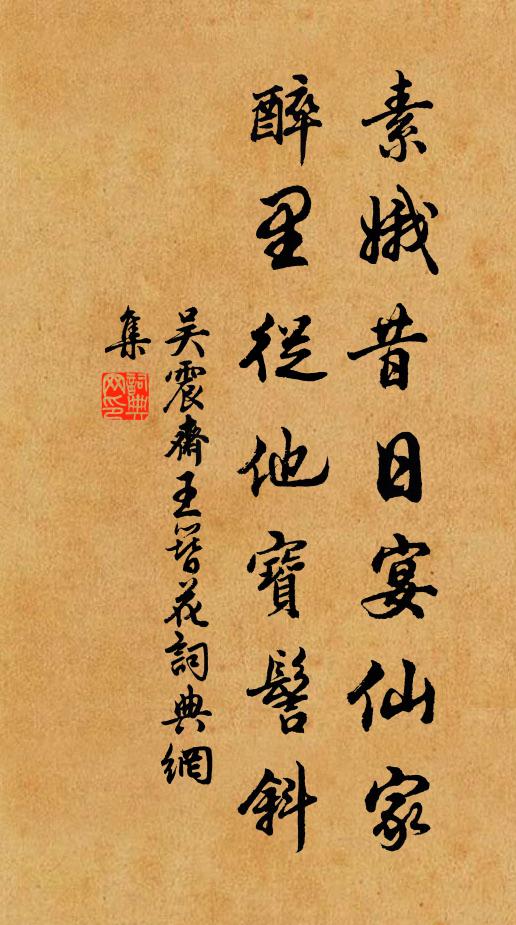 素娥昔日宴仙家
醉里從他寶髻斜
吴震齋玉簪花詞典網
集
詞典網印